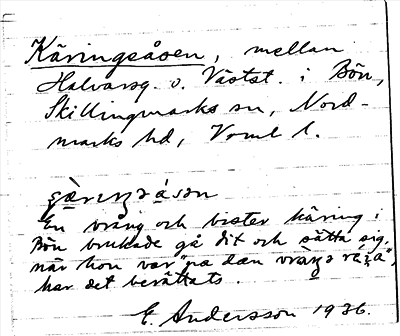 Käringåsen, mellan
Halvarsg. o. Västst. i Bön,
Skillingmarks sn, Nord-
marks hd, Vrml l.
En vrång och bister käring i
Bön brukade gå dit och sätta sig,
när hon var "på dæn vrãŋa
har det berättats.
E. Andersson 1936.